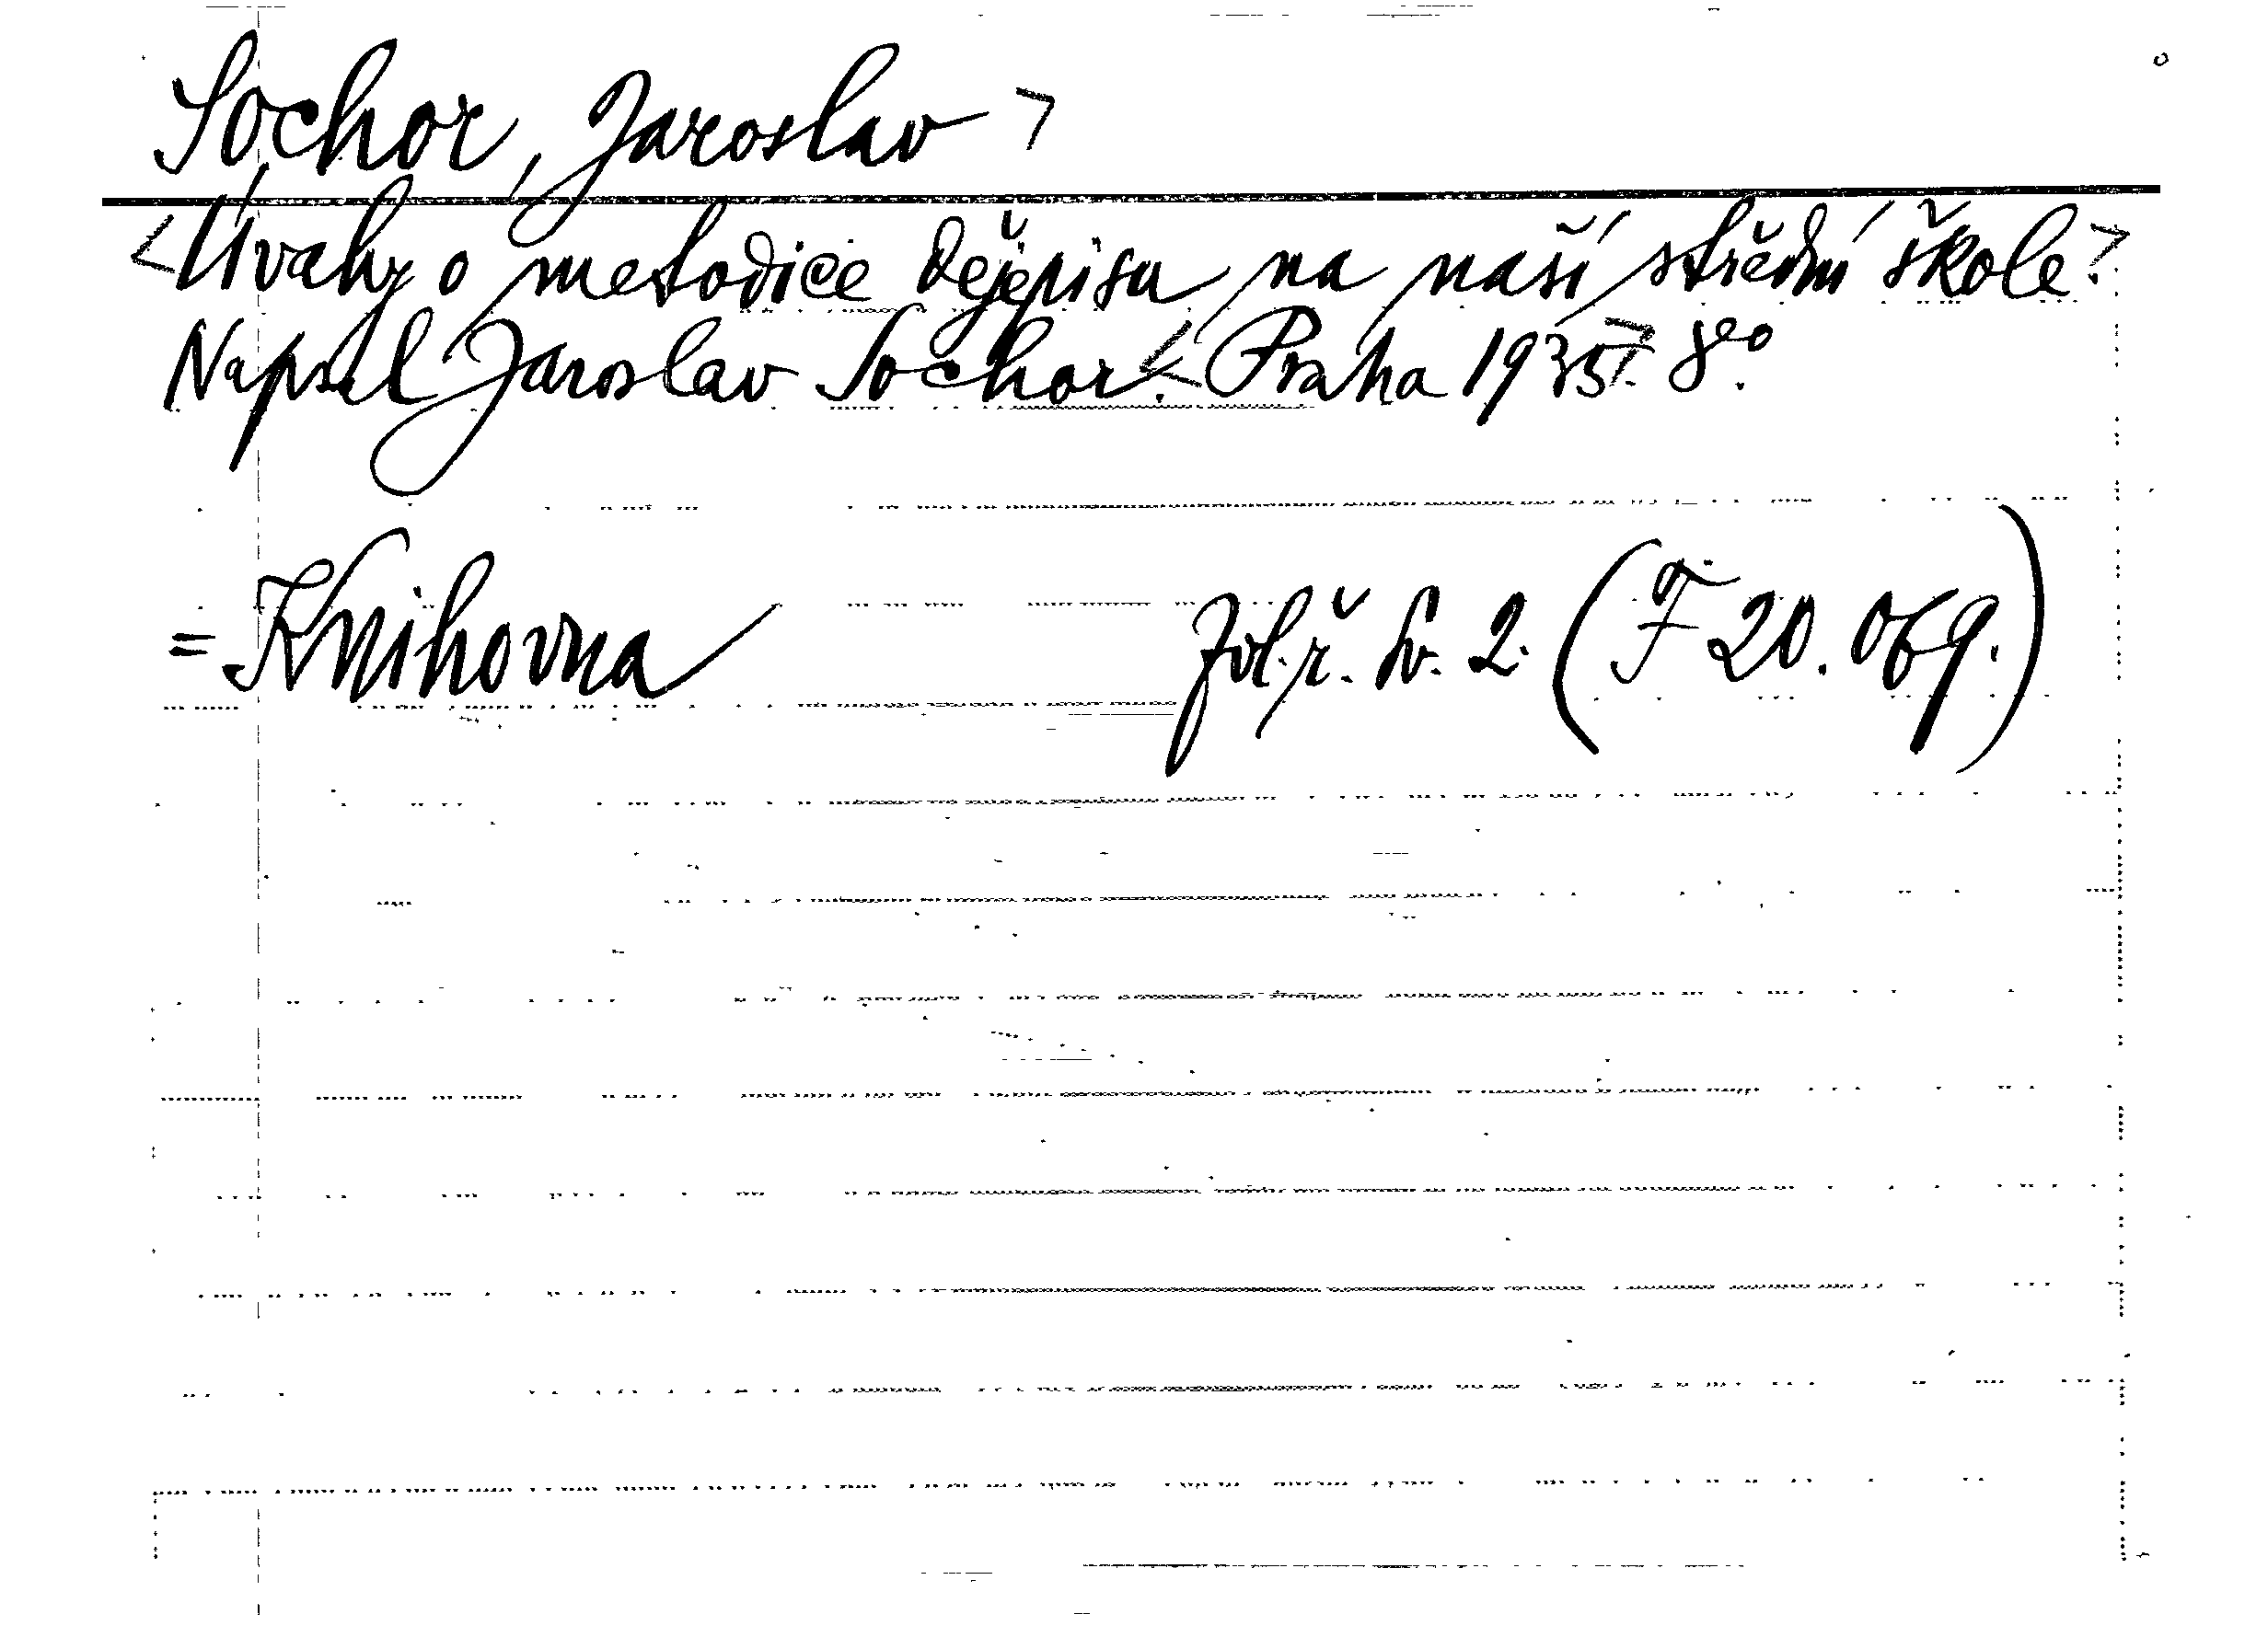 Sochor, Jaroslav >
<Úvahy o metodice dějepisu na naší střední škole.>
Napsal Jaroslav Sochor. <Praha 1935>. 8º.
= Knihovna Zvl. ř. Sv. 2. (F 20.069.)